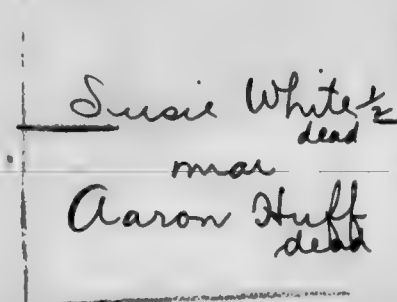 Susie White 1/2
dead
mar
Aaron Huff
dead